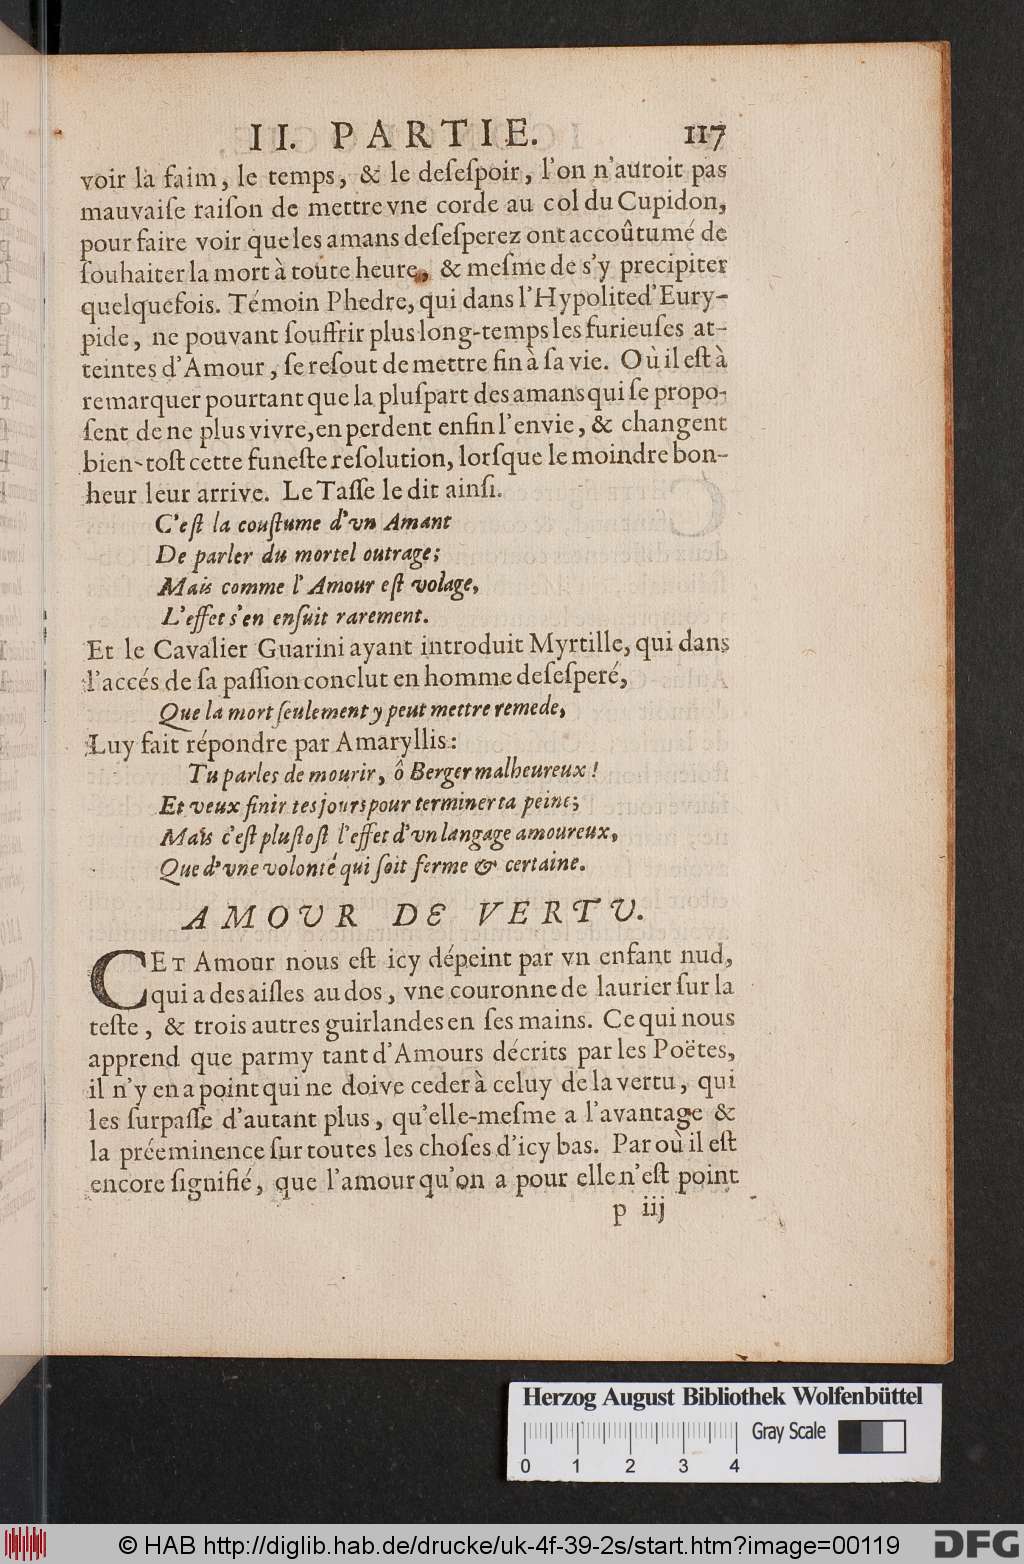 II. PARTIE. 117
voir la faim, le temps, & le deſeſpoir, l'on n'auroit pas
mauvaiſe raiſon de mettre vne corde au col du Cupidon,
pour faire voir que les amans deſeſperez ont accoûtumé de
ſouhaiter la mort à toute heure, & meſme de s'y precipiter
quelquefois. Témoin Phedre, qui dans l'Hypolite d'Eury-
pide, ne pouvant ſouffrir plus long-temps les furieuſes at-
teintes d'Amour, ſe reſout de mettre fin à ſa vie. Où il eſt à
remarquer pourtant que la pluſpart des amans qui ſe propo-
ſent de ne plus vivre, en perdent enfin l'envie, & changent
bien-toſt cette funeſte reſolution, lorſque le moindre bon-
heur leur arrive. Le Taſſe le dit ainſi.
C'eſt la couſtume d'vn Amant
De parler du mortel outrage;
Mais comme l'Amour eſt volage,
L'effet s'en enſuit rarement.
Et le Cavalier Guarini ayant introduit Myrtille, qui dans
l'accés de ſa paſſion conclut en homme deſeſperé,
Que la mort ſeulement y peut mettre remede,
Luy fait répondre par Amaryllis:
Tu parles de mourir, ô Berger malheureux!
Et veux finir tes jours pour terminer ta peine;
Mais c'eſt pluſtoſt l'effet d'vn langage amoureux,
Que d'vne volonté qui ſoit ferme & certaine.
AMOUR DE VERTU.
CET Amour nous eſt icy dépeint par vn enfant nud,
qui a des aiſles au dos, vne couronne de laurier ſur la
teſte, & trois autres guirlandes en ſes mains. Ce qui nous
apprend que parmy tant d'Amours décrits par les Poëtes,
il n'y en a point qui ne doive ceder à celuy de la vertu, qui
les ſurpaſſe d'autant plus, qu'elle-meſme a l'avantage &
la préeminence ſur toutes les choſes d'icy bas. Par où il eſt
encore ſignifié, que l'amour qu'on a pour elle n'eſt point
p iij
Herzog August Bibliothek Wolfenbüttel
Gray Scale
0 1 2 3 4
© HAB http://diglib.hab.de/drucke/uk-4f-39-2s/start.htm?image=00119
DFG